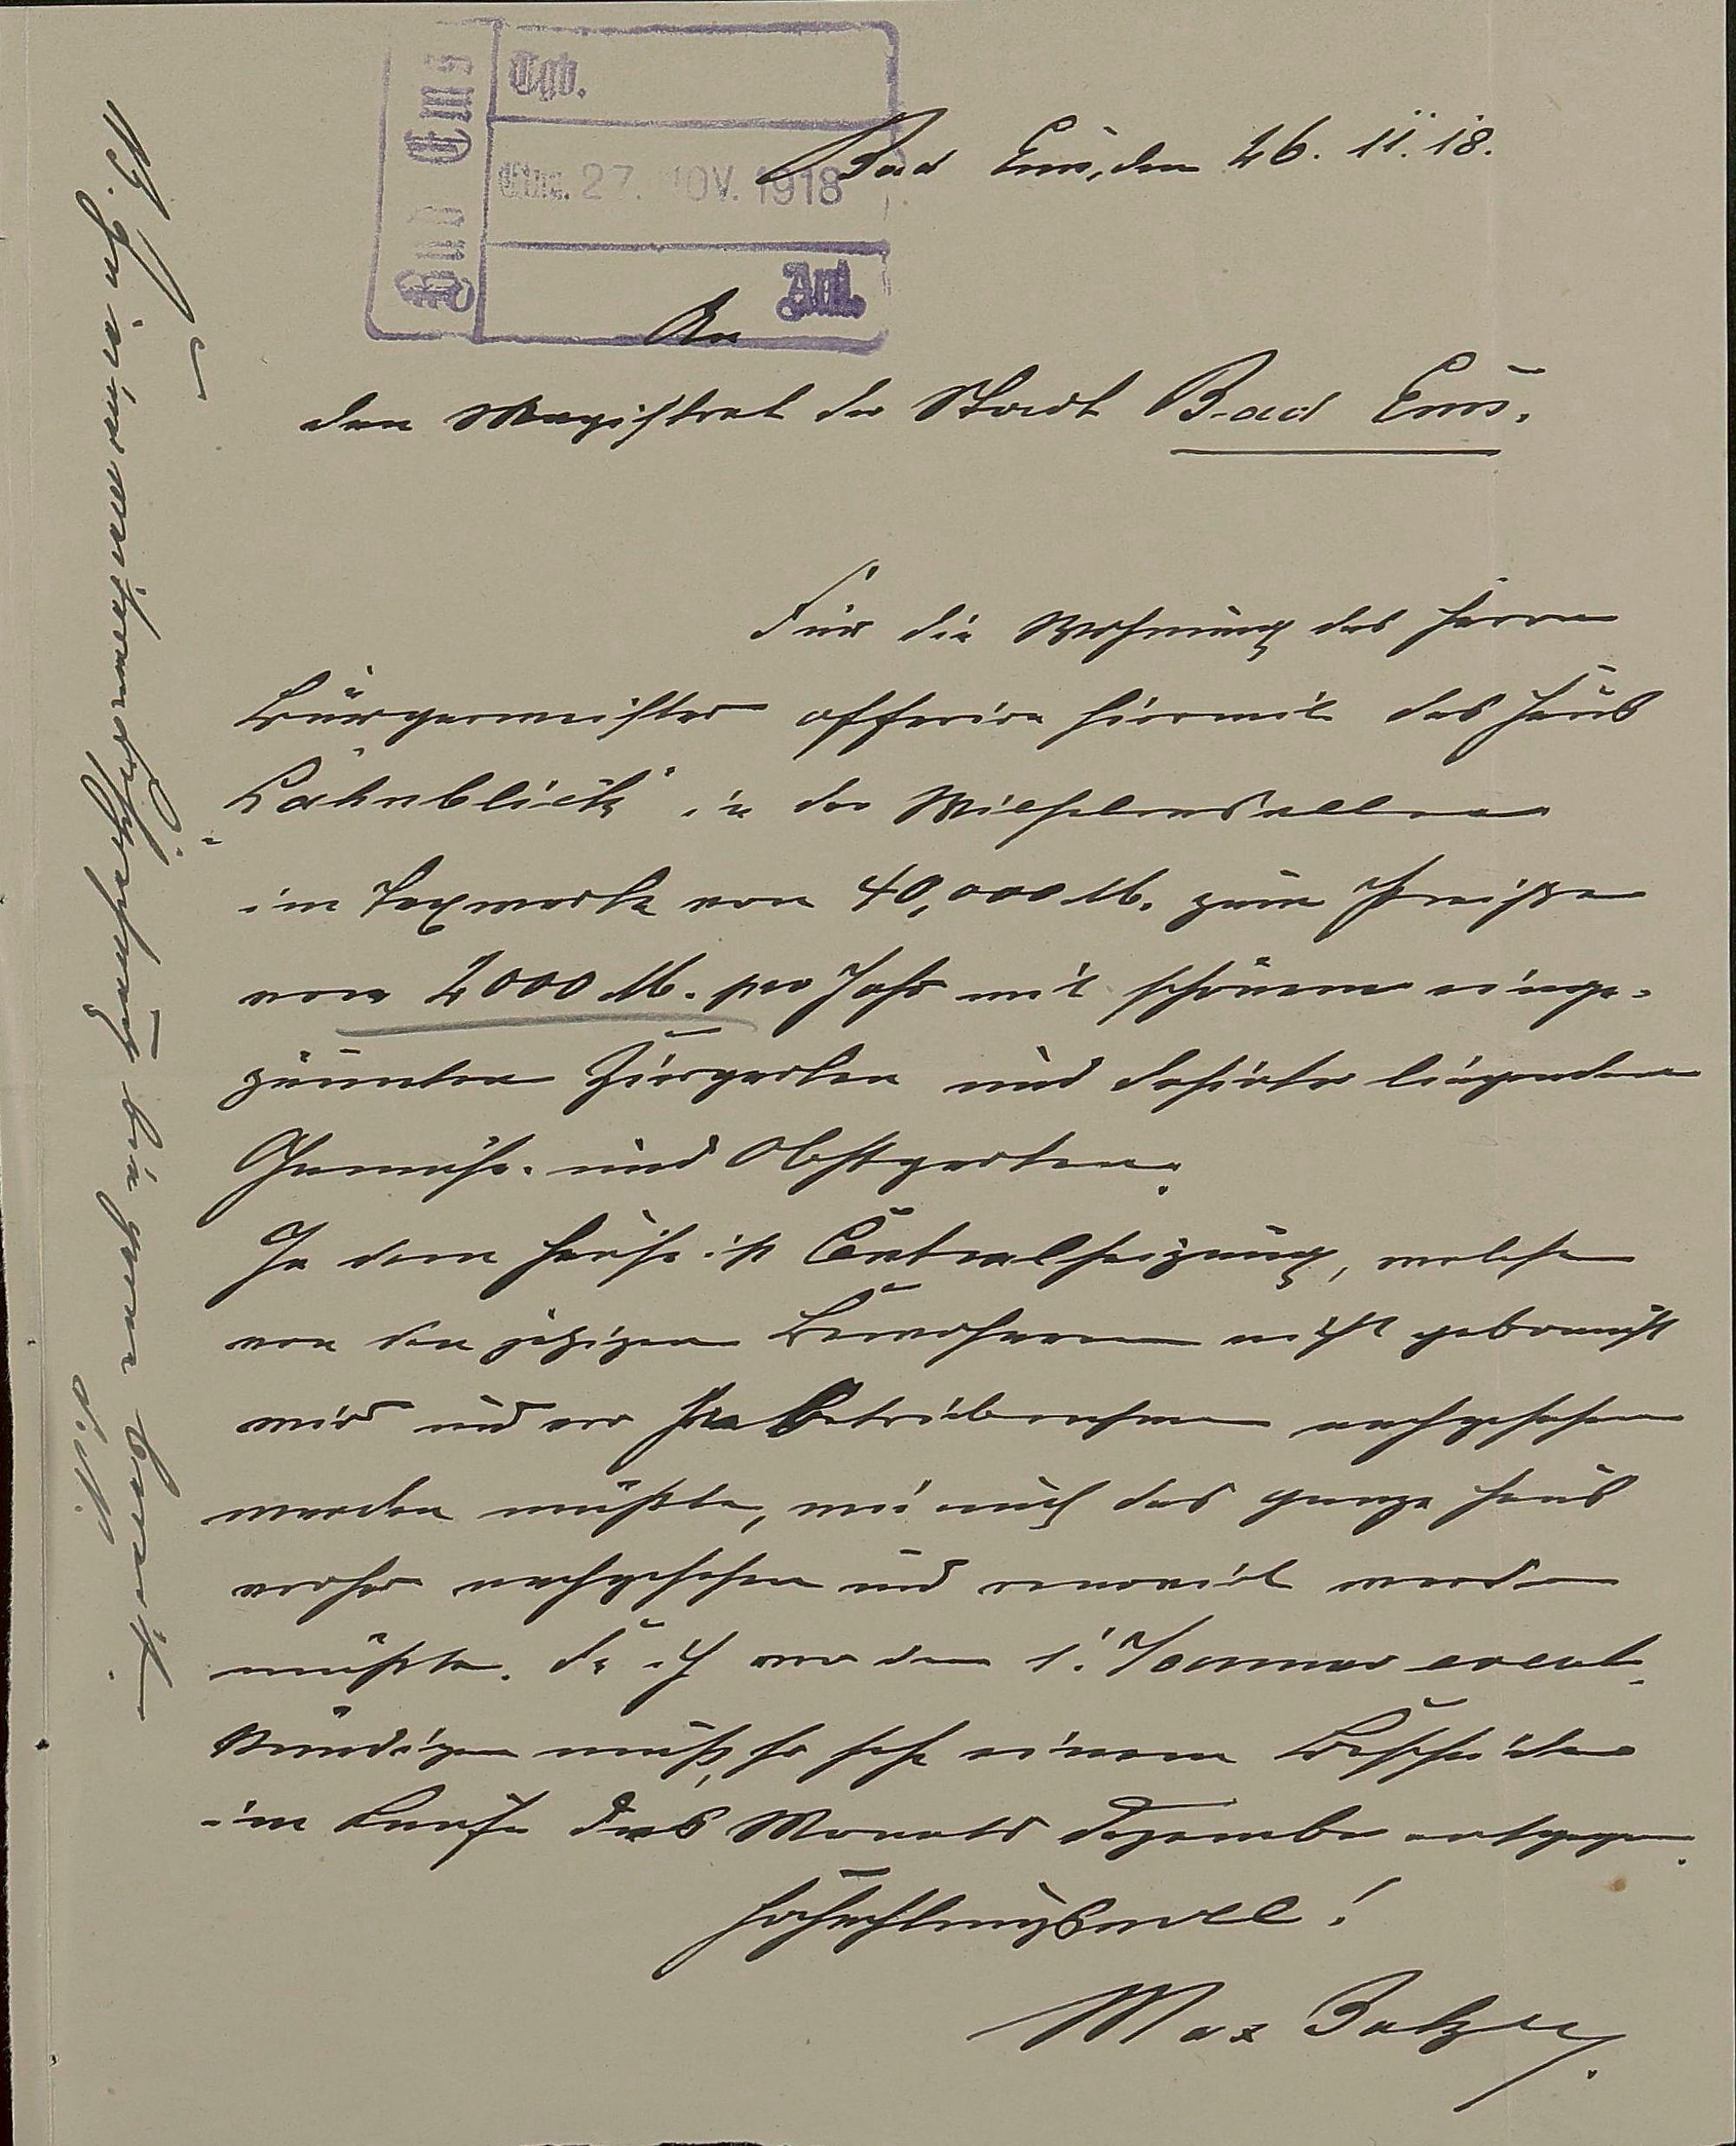 Bad Ems
Tgb.
Eing. 27. NOV. 1918
Anl.
Bad Ems, den 26. 11. 18.
An
den Magistrat der Stadt Bad Ems.
Für die Wohnung des Herrn
Bürgermeister offerire hiermit das Haus
„Lahnblick“ in der Wilhelmsallee
im Taxwerte von 40,000 M. zum Preise
von 2000 M. pro Jahr mit schönem einge-
zäunten Ziergarten und dahinter liegendem
Gemüse- und Obstgarten.
In dem Hause ist Centralheizung, welche
von den jetzigen Bewohnern nicht gebraucht
wird und vor Inbetriebnahme nachgesehen
werden müßte, wie auch das ganze Haus
vorher nachgesehen und renovirt werden
müßte. Da ich vor dem 1. Januar event.
kündigen muß, so sehe einem Bescheide
im Laufe des Monats Dezember entgegen.
Hochachtungsvoll!
Max Balzer.